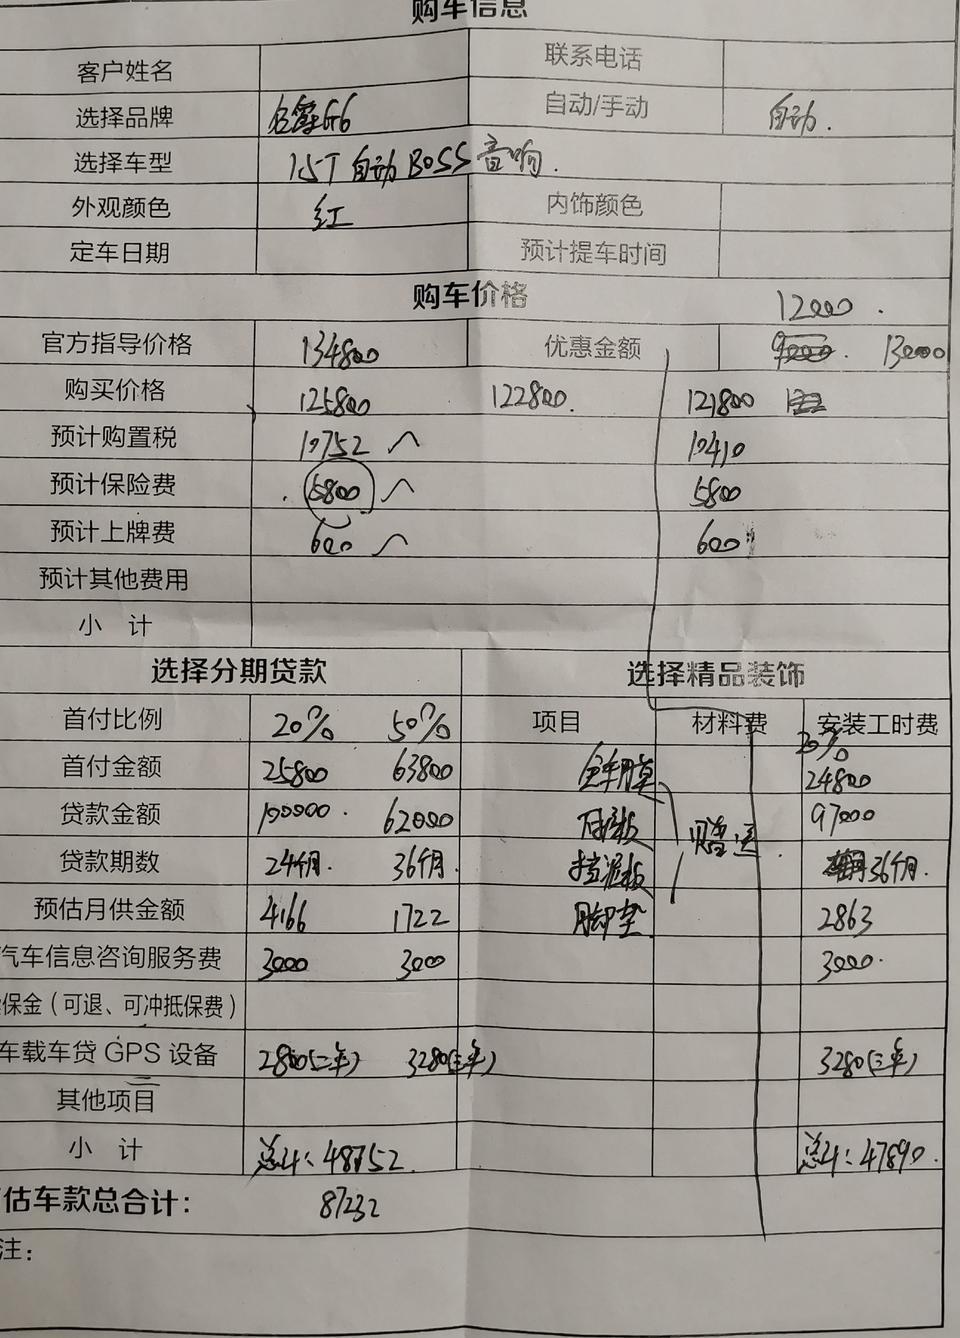 购车信息
客户姓名 联系电话
选择品牌 名爵G6 自动/手动 自动.
选择车型 1.5T 自动 BOSS 音响.
外观颜色 红 内饰颜色
定车日期 预计提车时间
购车价格 12000.
官方指导价格 134800 优惠金额 9000. 13000
购买价格 125800 122800. 121800
预计购置税 10752 10410
预计保险费 5800 5800
预计上牌费 600 600
预计其他费用
小 计
选择分期贷款 选择精品装饰
首付比例 20% 50% 项目 材料费 安装工时费
20%
首付金额 25800 63800 全车膜 24800
贷款金额 100000. 62000 赠送 97000
贷款期数 24个月. 36个月. 挡泥板 36个月.
预估月供金额 4166 1722 脚垫 2863
汽车信息咨询服务费 3000 3000 3000.
保金(可退、可冲抵保费)
车载车贷 GPS 设备 2800(二年) 3280(三年) 3280(三年)
其他项目
小 计 总计:48752. 总计:47890.
估车款总合计: 87232
注: